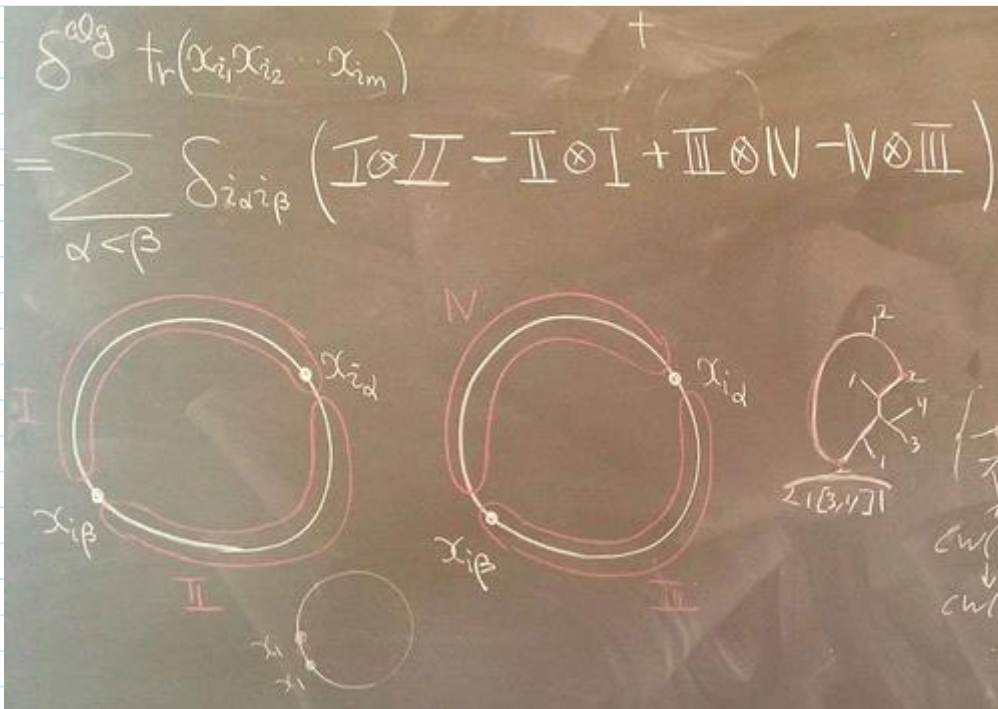 δ^{alg} tr(x_{i_1} x_{i_2} ··· x_{i_m})
= Σ_{α<β} δ_{i_α i_β} (I⊗II − II⊗I + III⊗IV − IV⊗III)
I
x_{i_α}
x_{i_β}
II
IV
x_{i_α}
x_{i_β}
III
2
1
2
4
3
1
2
21[3,4]1
x_1
x_1
cw(
↓
cw(